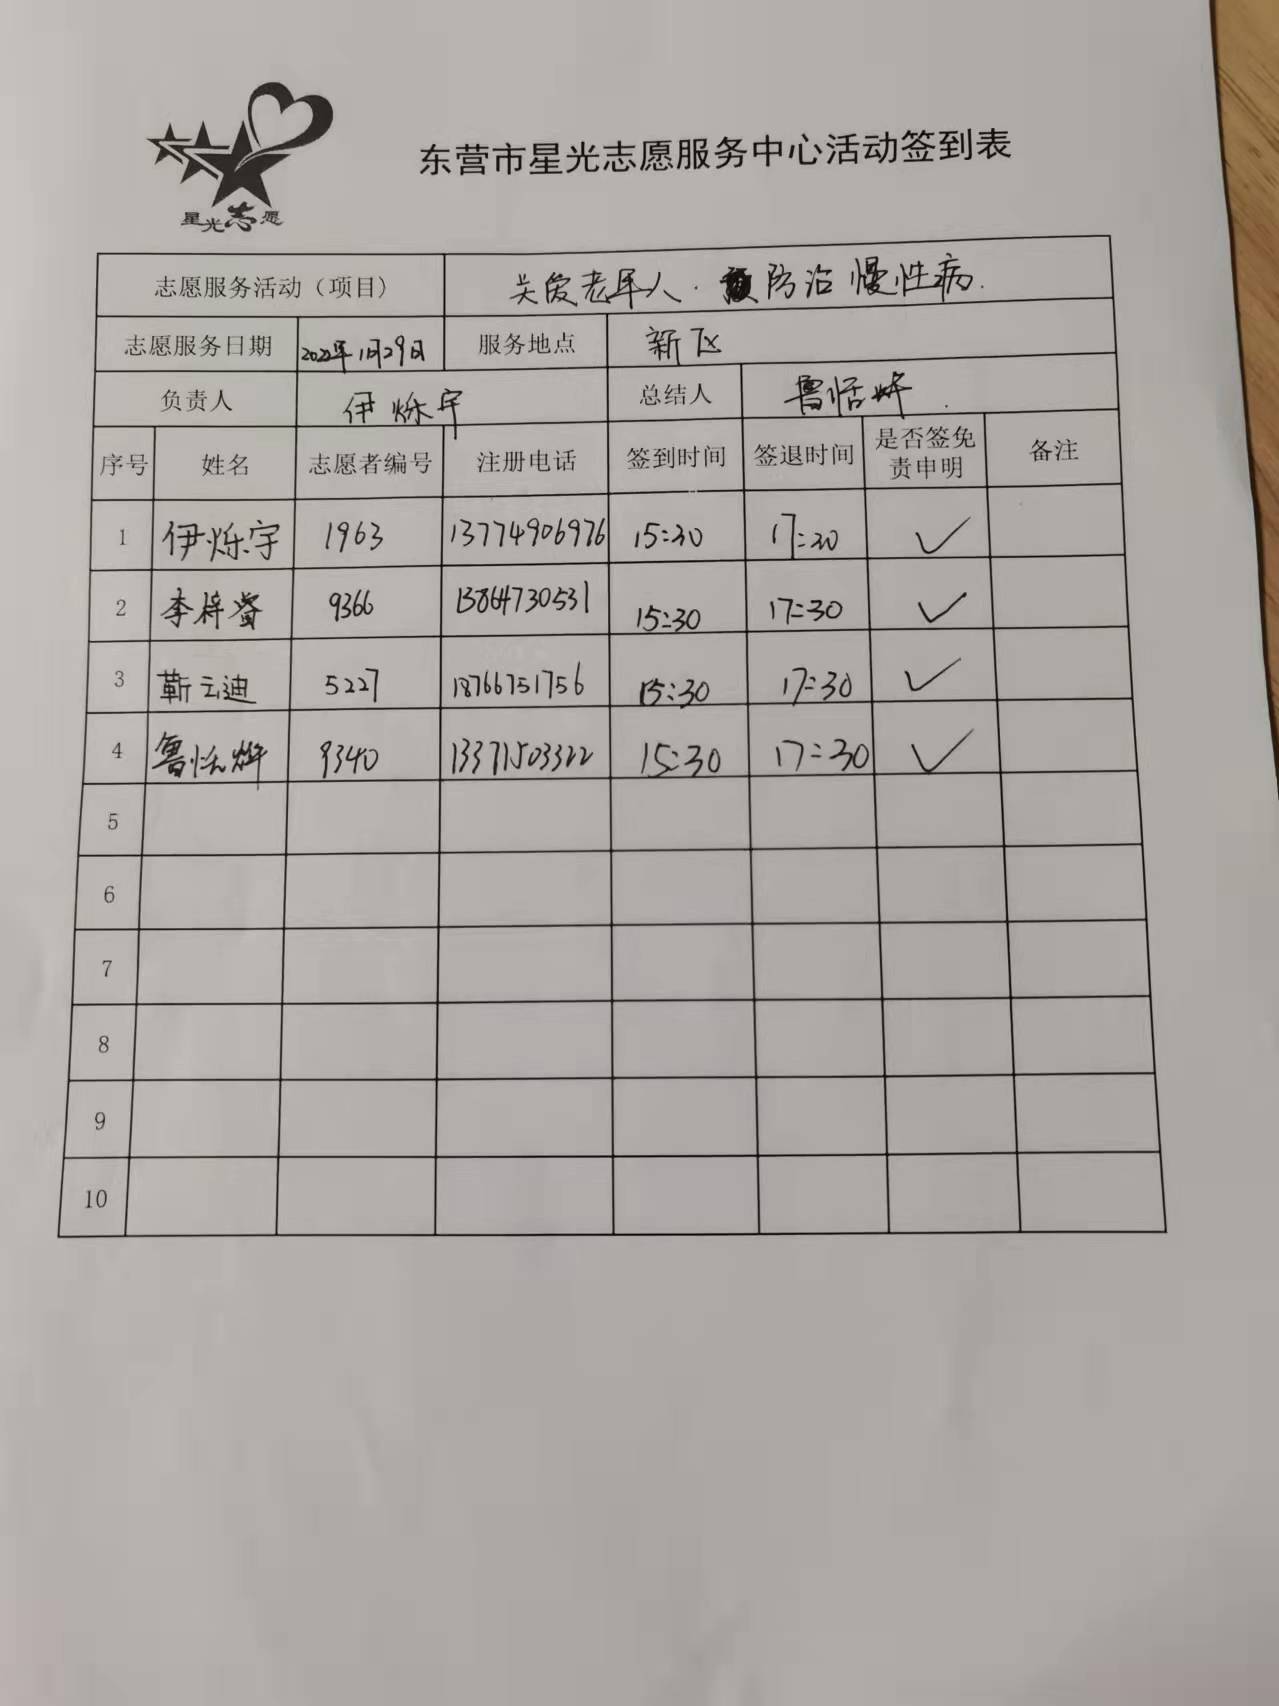 星光志愿
东营市星光志愿服务中心活动签到表
志愿服务活动（项目） 关爱老年人. 防治慢性病.
志愿服务日期 2022年1月29日 服务地点 新区
负责人 伊烁宇 总结人 鲁恬烨
序号 姓名 志愿者编号 注册电话 签到时间 签退时间 是否签免责申明 备注
1 伊烁宇 1963 13774906976 15:30 17:30 ✓
2 李梓睿 9366 13864730531 15:30 17:30 ✓
3 靳云迪 5227 18766751756 15:30 17:30 ✓
4 鲁恬烨 9340 13371503322 15:30 17:30 ✓
5
6
7
8
9
10